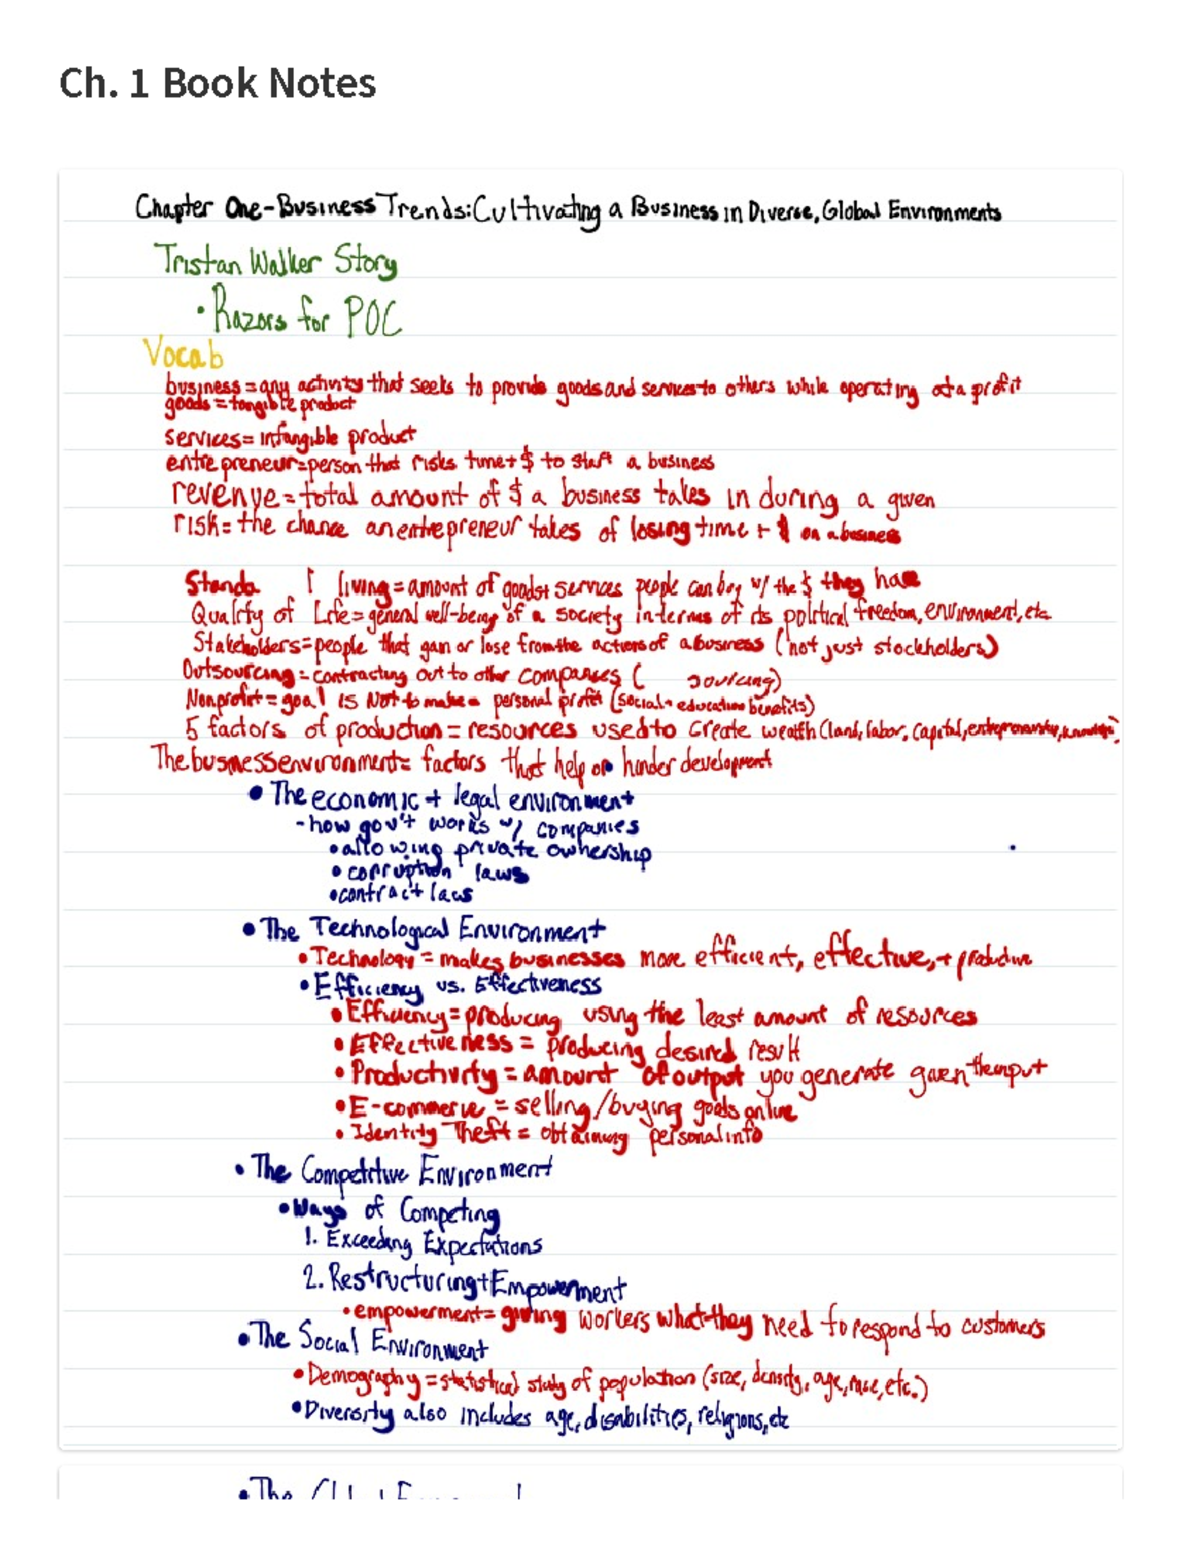 Ch. 1 Book Notes
Chapter One-Business Trends: Cultivating a Business in Diverse, Global Environments
Tristan Walker Story
• Razors for POC
Vocab
business = any activity that seeks to provide goods and services to others while operating at a profit
goods = tangible product
services = intangible product
entrepreneur = person that risks time + $ to start a business
revenye = total amount of $ a business takes in during a given
risk = the chance an entrepreneur takes of losing time + $ on a business
living = amount of goods + services people can buy w/ the $ they have
Quality of Life = general well-being of a society in terms of its political freedom, environment, etc
Stakeholders = people that gain or lose from the actions of a business (not just stockholders)
Outsourcing = contracting out to other companies ( sourcing)
Nonprofit = goal is not to make personal profit (social + education benefits)
5 factors of production = resources used to create wealth (land, labor, capital,
The business environment = factors that help or hinder development
• The economic + legal environment
- how gov't works w/ companies
• allowing private ownership
• corruption laws
• contract laws
• The Technological Environment
• Technology = makes businesses more efficient, effective, + productive
• Efficiency vs. Effectiveness
• Efficiency = producing using the least amount of resources
• Effectiveness = producing desired result
• Productivity = amount of output you generate given the input
• E-commerce = selling/buying goods online
• Identity Theft = obtaining personal info
• The Competitive Environment
• Ways of Competing
1. Exceeding Expectations
2. Restructuring + Empowerment
• empowerment = giving workers what they need to respond to customers
• The Social Environment
• Demography = statistical study of population (size, density, age, race, etc.)
• Diversity also includes age, disabilities, religions, etc
• The